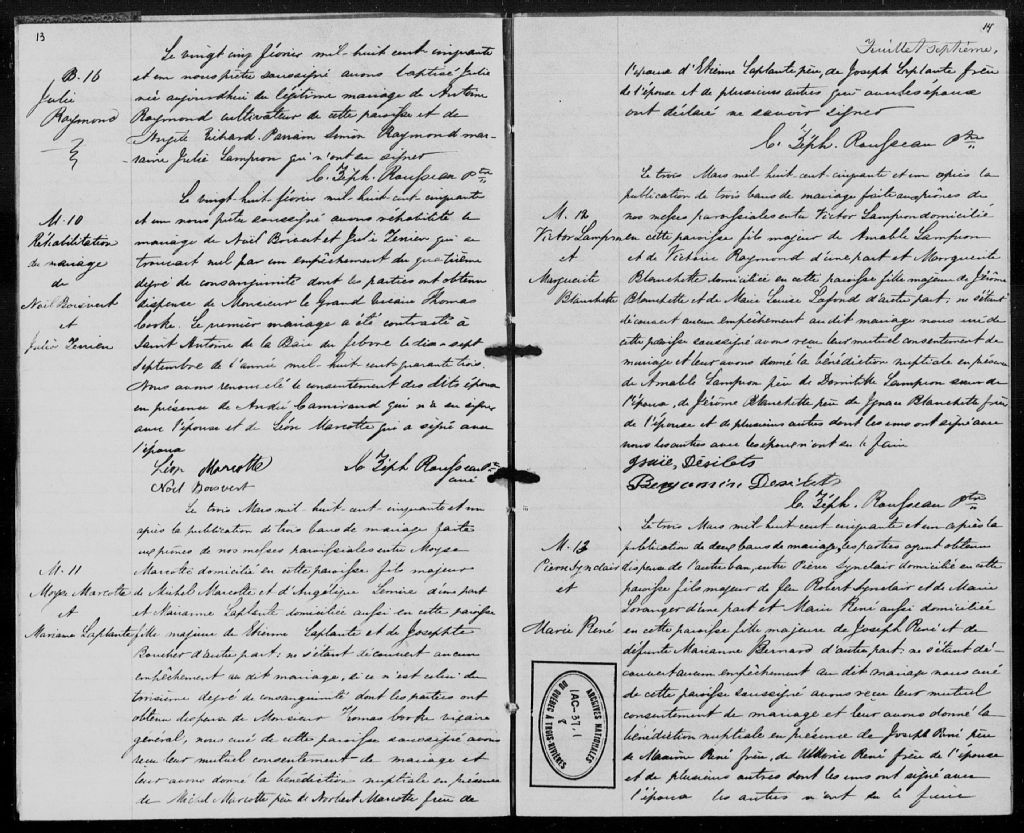 13
B. 16
Julie
Raymond
Le vingt cinq février mil-huit cent cinquante
et un nous prêtre soussigné avons baptisé Julie
née aujourdhui du légitime mariage de Antoine
Raymond cultivateur de cette paroisse et de
Angele Richard. Parrain Simon Raymond mar-
raine Julie Lampron qui n'ont su signer
C. Zéph. Rousseau Ptre
M. 10
Réhabilitation
du mariage
de
Noël Boisvert
et
Julie Terrien
Le vingt-huit février mil-huit cent cinquante
et un nous prêtre soussigné avons réhabilité le
mariage de Noël Boisvert et Julie Terrien qui se
trouvait nul par un empêchement du quatrième
degré de consanguinité dont les parties ont obtenu
dispense de Monsieur le Grand Vicaire Thomas
Cooke. Le premier mariage a été contracté à
Saint Antoine de la Baie du febvre le dix-sept
septembre de l'année mil-huit cent quarante trois.
Nous avons renouvelé le consentement des dits époux
en présence de André Camirand qui n'a su signer
avec l'épouse et de Léon Marcotte qui a signé avec
l'époux
Léon Marcotte
C. Zéph Rousseau Ptre
curé
Noël Boisvert
M. 11
Moyse Marcotte
et
Mariane Laplante
Le trois Mars mil-huit-cent-cinquante et un
après la publication de trois bans de mariage faite
aux prônes de nos messes paroissiales entre Moyse
Marcotte domicilié en cette paroisse fils majeur
de Michel Marcotte et d'Angelique Lemire d'une part
et Marianne Laplante domiciliée aussi en cette paroisse
fille majeure de Etienne Laplante et de Josephte
Boucher d'autre part; ne s'étant découvert aucun
empêchement au dit mariage, si ce n'est celui du
troisième degré de consanguinité dont les parties ont
obtenu dispense de Monsieur Thomas Cooke vicaire
général, nous curé de cette paroisse soussigné avons
reçu leur mutuel consentement de mariage et
leur avons donné la bénédiction nuptiale en présence
de Michel Marcotte père de Norbert Marcotte frère de
14
Feuillet septième.
l'époux d'Etienne Laplante père, de Joseph Laplante frère
de l'épouse et de plusieurs autres qui avec les époux
ont déclaré ne savoir signer
C. Zéph. Rousseau Ptre
M. 12
Victor Lampron
et
Marguerite
Blanchette
Le trois Mars mil-huit cent-cinquante et un après la
publication de trois bans de mariage faite aux prônes de
nos messes paroissiales entre Victor Lampron domicilié
en cette paroisse fils majeur de Amable Lampron
et de Victoire Raymond d'une part et Marguerite
Blanchette domiciliée en cette paroisse fille majeure de Jérôme
Blanchette et de Marie Louise Lafond d'autre part; ne s'étant
découvert aucun empêchement au dit mariage nous curé de
cette paroisse soussigné avons reçu leur mutuel consentement de
mariage et leur avons donné la bénédiction nuptiale en présence
de Amable Lampron père de Domitille Lampron soeur de
l'époux, de Jérôme Blanchette père de Ignace Blanchette frère
de l'épouse et de plusieurs autres dont les uns ont signé avec
nous les autres avec les époux n'ont su le faire
Désilets
Benjamin Desilets
C. Zéph. Rousseau Ptre
M. 13
Pierre Synclair
et
Marie René
Le trois Mars mil-huit cent cinquante et un après la
publication de deux bans de mariage, les parties ayant obtenu
dispense de l'autre ban, entre Pierre Synclair domicilié en cette
paroisse fils majeur de feu Robert Synclair et de Marie
Loranger d'une part et Marie René aussi domiciliée
en cette paroisse fille majeure de Joseph René et de
défunte Marianne Bernard d'autre part; ne s'étant dé-
couvert aucun empêchement au dit mariage nous curé
de cette paroisse soussigné avons reçu leur mutuel
consentement de mariage et leur avons donné la
bénédiction nuptiale en présence de Joseph René père
de Maxime René frère, de René frère de l'épouse
et de plusieurs autres dont les uns ont signé avec
l'époux les autres n'ont su le faire
ARCHIVES NATIONALES
DU QUÉBEC À TROIS-RIVIÈRES